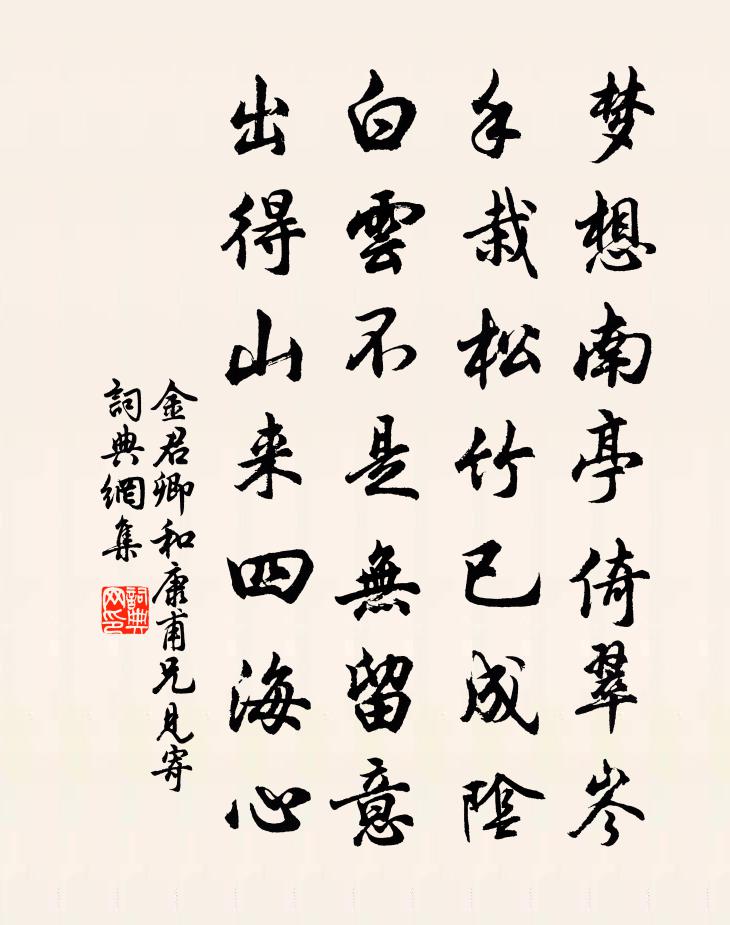 梦想南亭倚翠岑
手栽松竹已成陰
白雲不是無留意
出得山来四海心
金君卿和康甫兄見寄
詞典網集
詞典网印